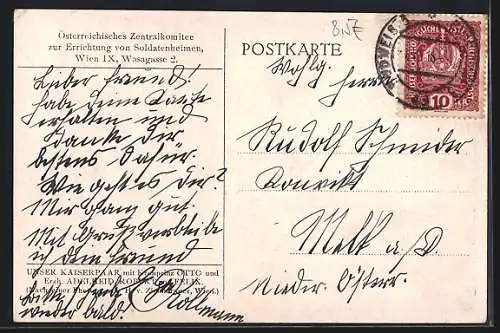 Österreichisches Zentralkomitee
zur Errichtung von Soldatenheimen,
Wien IX, Wasagasse 2.
POSTKARTE
Lieber Freund!
habe deine Karte
erhalten und
danke dir
bestens dafür.
Wie geht es dir?
Mir ganz gut.
Mit Gruß verbleibe
ich dein Freund
UNSER KAISERPAAR mit Kronprinz OTTO und
Erzh. ADELHEID, ROBERT FELIX.
Bitte
wieder bald.
Wohlg. Herrn
Rudolf Schneider
Konvikt
Melk a/D.
Nieder. Österr.
10